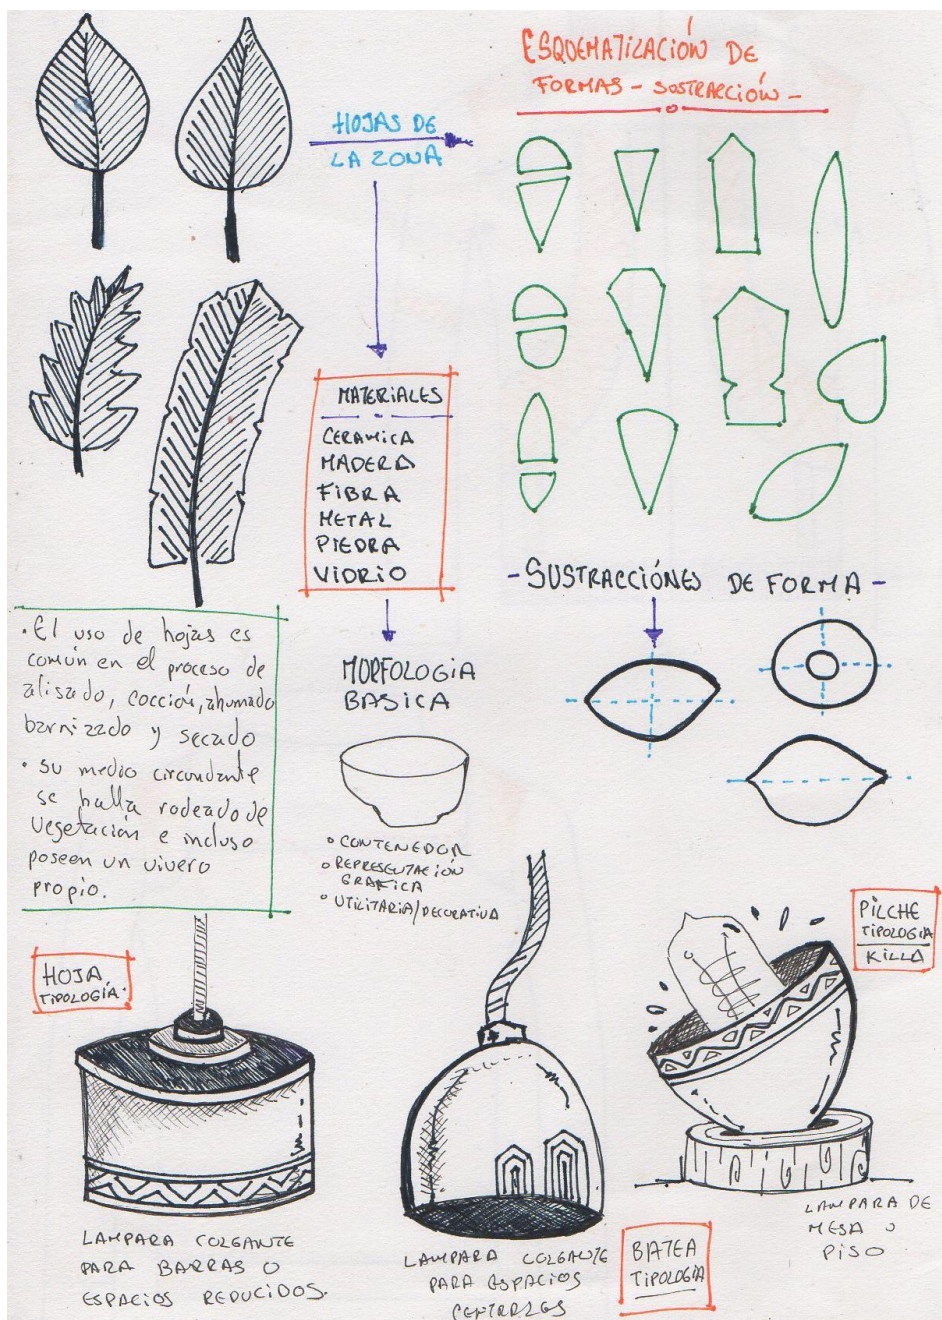 ESQUEMATIZACIÓN DE
FORMAS - SUSTRACCIÓN -
HOJAS DE
LA ZONA
MATERIALES
CERAMICA
MADERA
FIBRA
METAL
PIEDRA
VIDRIO
- SUSTRACCIÓNES DE FORMA -
• El uso de hojas es
común en el proceso de
alisado, cocción, ahumado
barnizado y secado
• su medio circundante
se halla rodeado de
vegetación e incluso
poseen un vivero
propio.
MORFOLOGIA
BASICA
° CONTENEDOR
° REPRESENTACIÓN
GRAFICA
° UTILITARIA/DECORATIVA
HOJA
TIPOLOGÍA.
PILCHE
TIPOLOGIA
KILLA
LAMPARA COLGANTE
PARA BARRAS O
ESPACIOS REDUCIDOS.
LAMPARA COLGANTE
PARA ESPACIOS
CENTRALES
BATEA
TIPOLOGIA
LAMPARA DE
MESA O
PISO